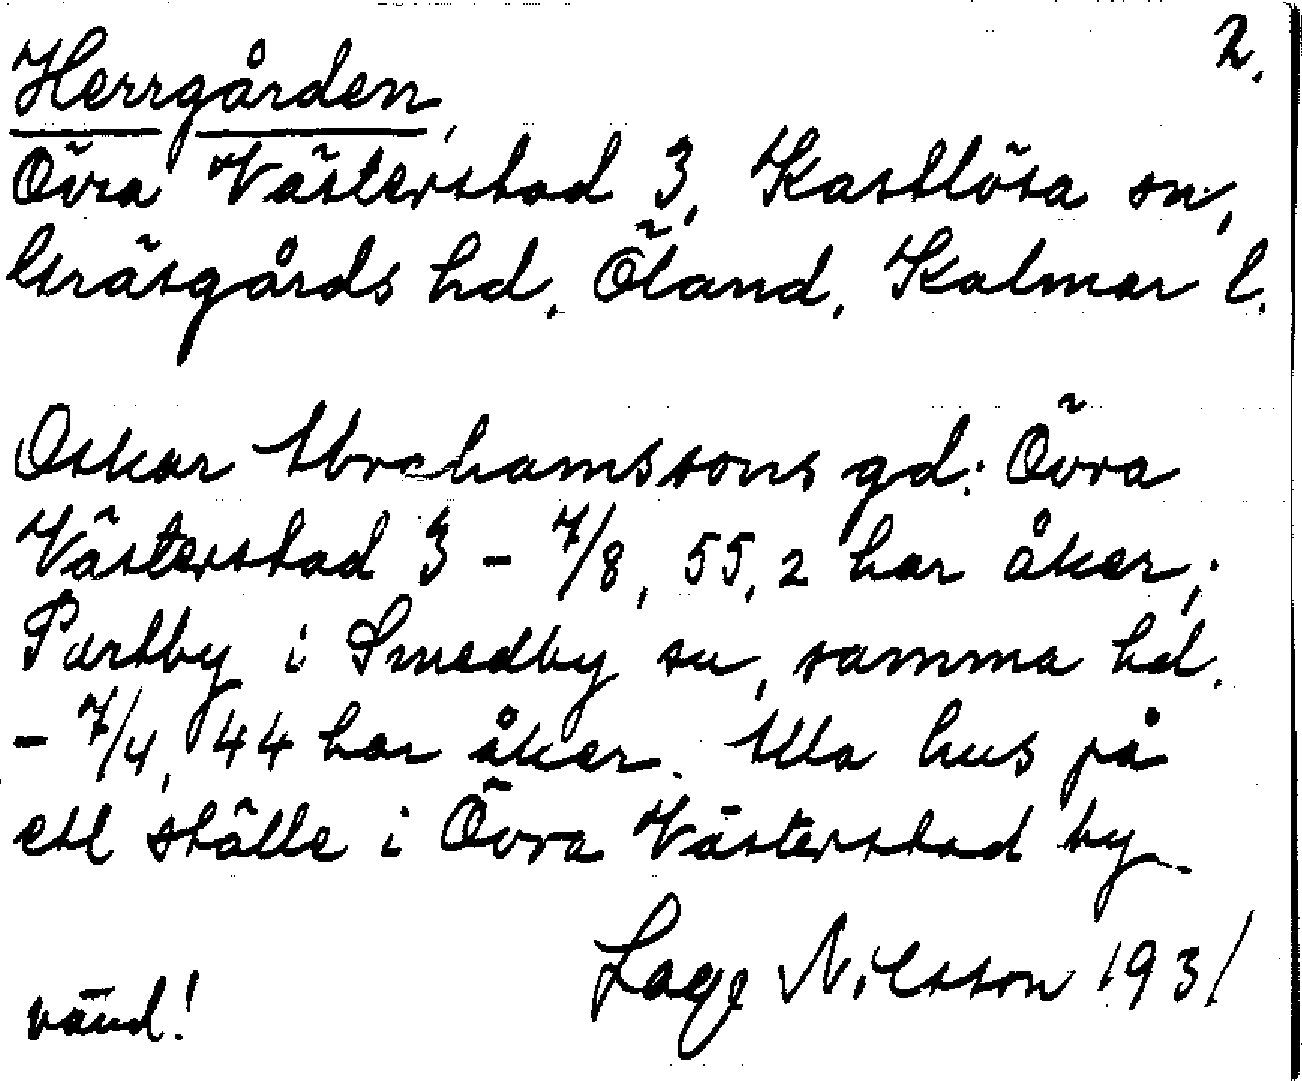 2.
Herrgården,
Övra Västerstad 3, Kastlösa sn,
Gräsgårds hd. Öland, Kalmar l.
Oskar Abrahamssons gd: Övra
Västerstad 3 - 7/8, 55,2 har åker;
Parteby i Smedby sn, samma hd.
- 7/4, 44 har åker. Alla hus på
ett ställe i Övra Västerstad by
Lage Nilsson 1931
vänd!